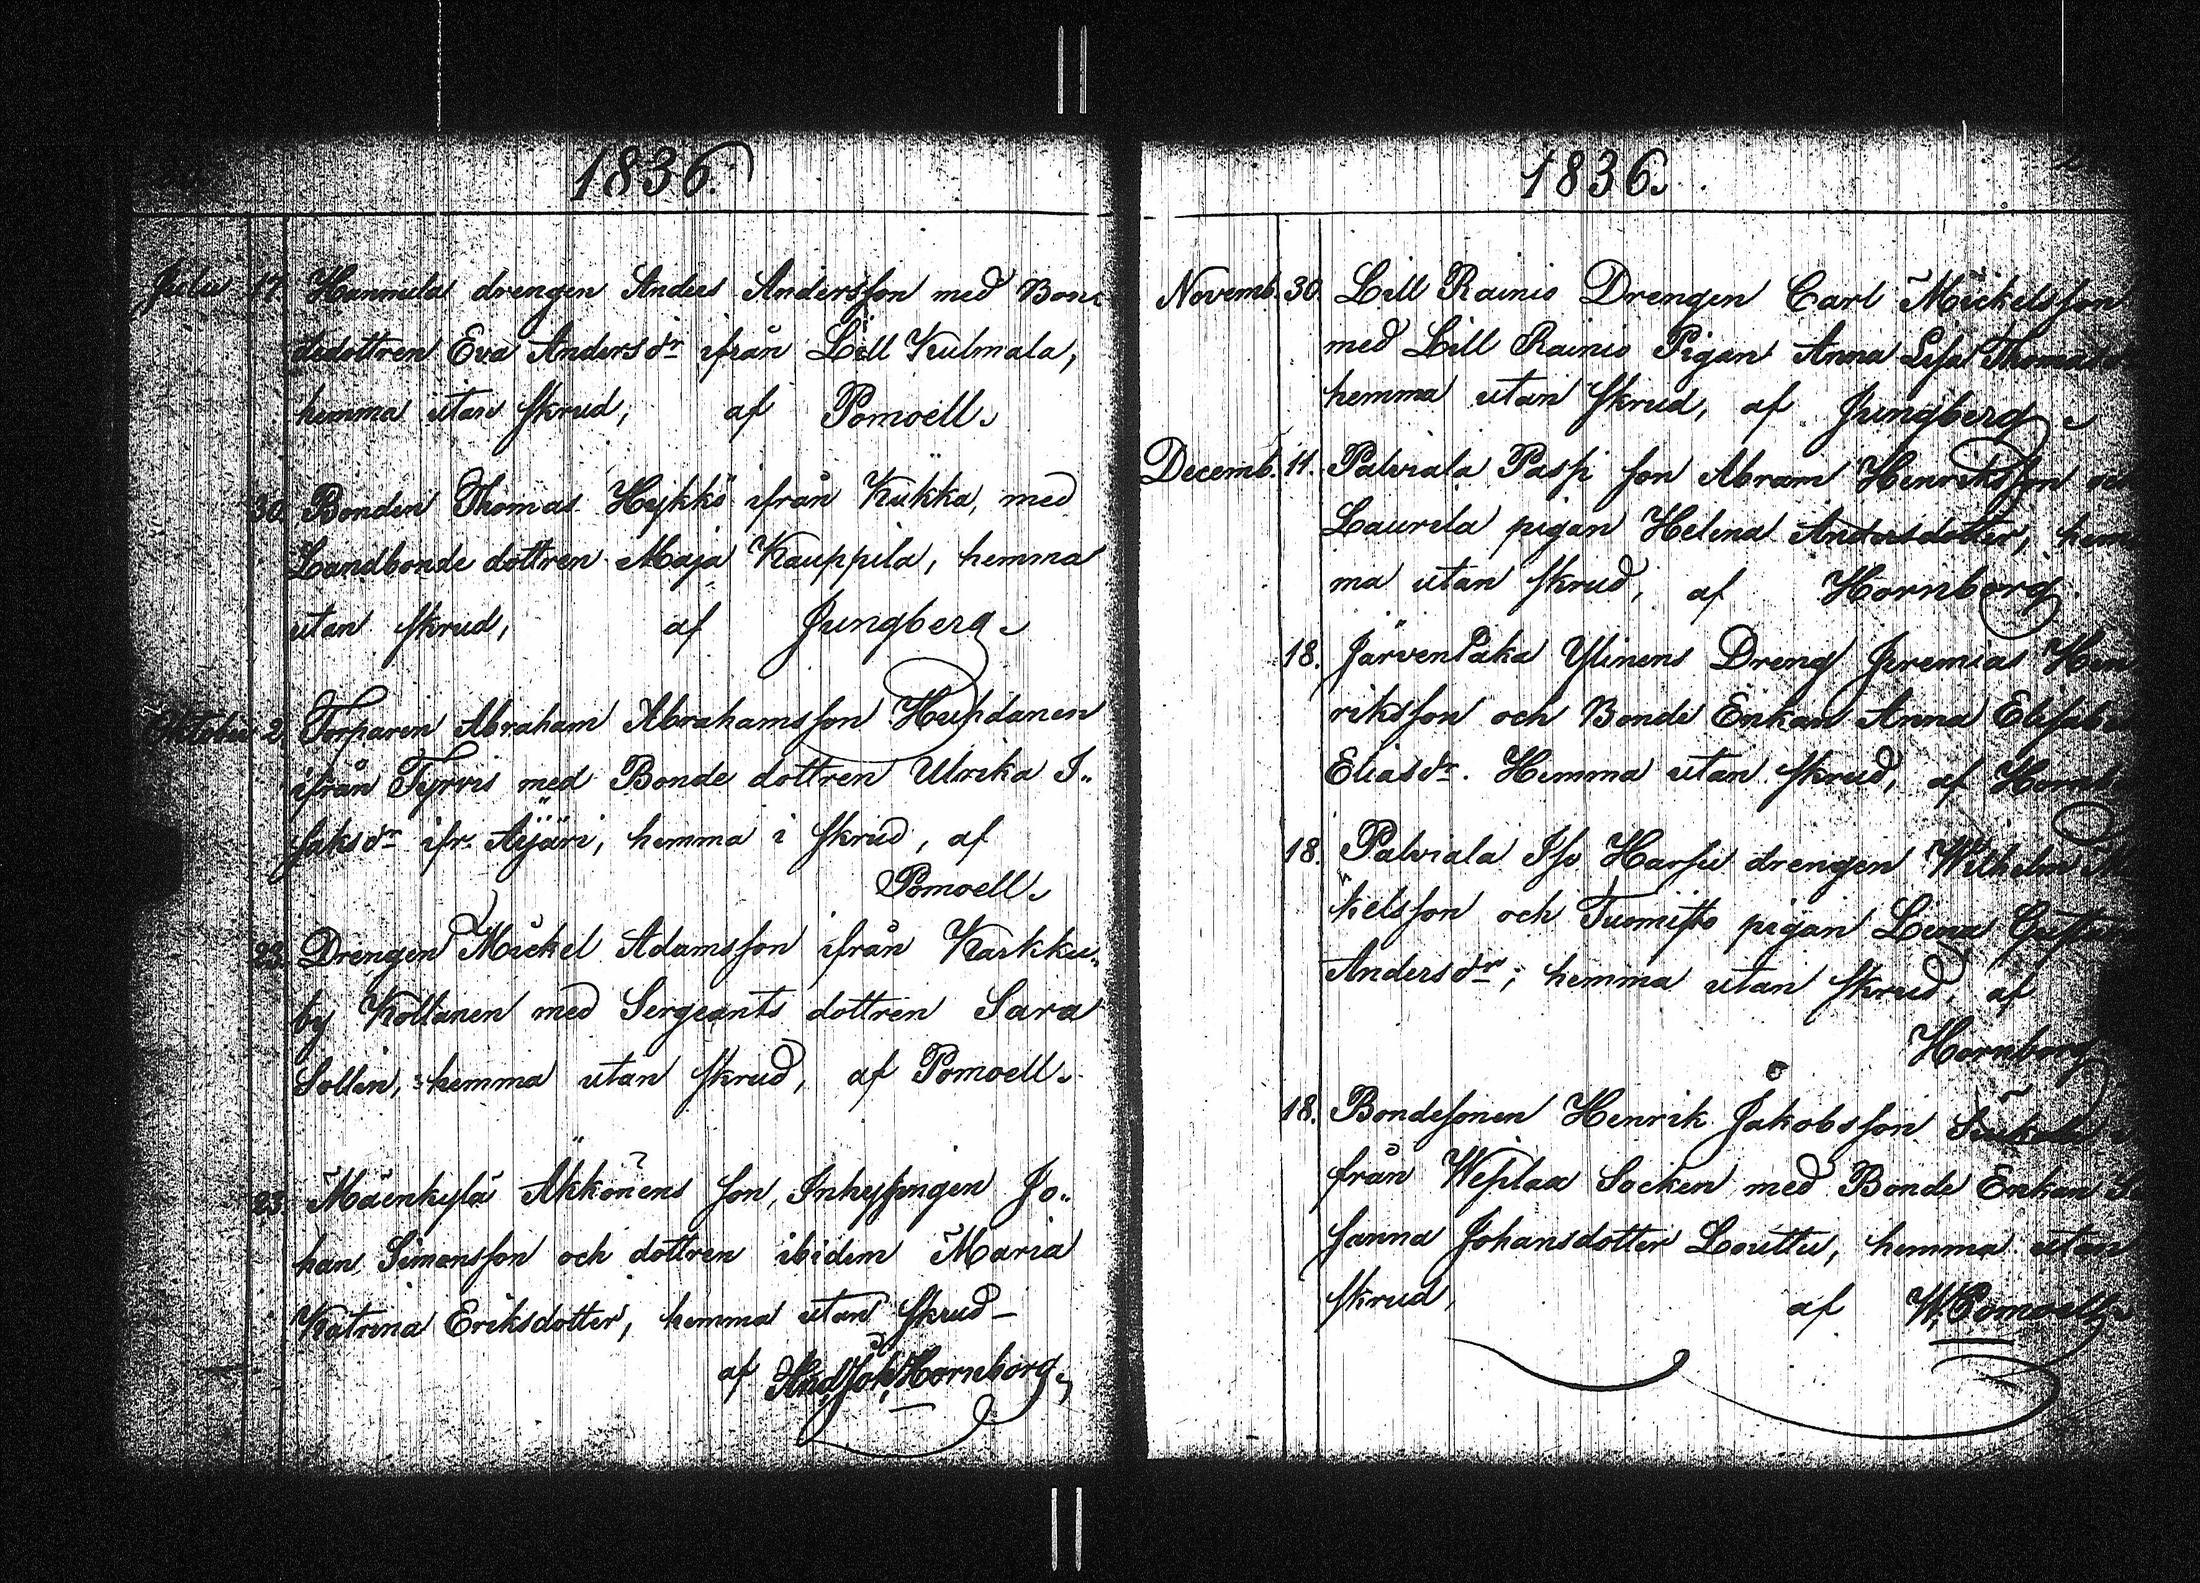 1836.
Julii 17. Hannula drengen Anders Andersson med Bon-
dedottren Eva Andersdr ifrån Lill Kulmala,
hemma utan skrud, af Pomoell.
30. Bonden Thomas Hykkö ifrån Kukka, med
Landbonde dottren Maja Kauppila, hemma
utan skrud, af Jungberg.
Oktober 2. Torparen Abraham Abrahamsson Huhdanen
ifrån Tyrvis med Bonde dottren Ulrika I-
saksdr ifr. Äijäri, hemma i skrud, af
Pomoell.
23. Drengen Mickel Adamsson ifrån Karkku-
by Kottanen med Sergeants dottren Sara
Sollin, hemma utan skrud, af Pomoell.
23. Mäenkylä Äkkönens son, Inhysingen Jo-
han Simonsson och dottren ibidem Maria
Katrina Eriksdotter, hemma utan skrud –
af And. Joh. Hornborg.
1836.
Novemb. 30. Lill Rainio Drengen Carl Mickelsson
med Lill Rainio Pigan Anna Lisa
hemma utan skrud, af Jungberg.
Decemb. 11. Palviala Passi son Abram Henriksson
Laurila pigan Helena Andersdotter, hem
ma utan skrud, af Hornborg.
18. Järvenpäkä Ylinens Dreng Jeremias Hen
riksson och Bonde Enkan Anna
Eliasdr. Hemma utan skrud, af
18. Palviala Iso Harju drengen Wilhelm
kelsson och Tuomisto pigan Lena
Andersdr; hemma utan skrud, af
Hornborg
18. Bondesonen Henrik Jakobsson
från Wesilax Socken med Bonde Enkan
sanna Johansdotter Louttu, hemma utan
skrud, af W. Pomoell.